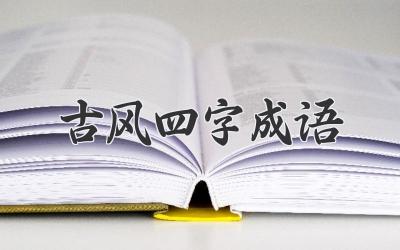 古风四字成语